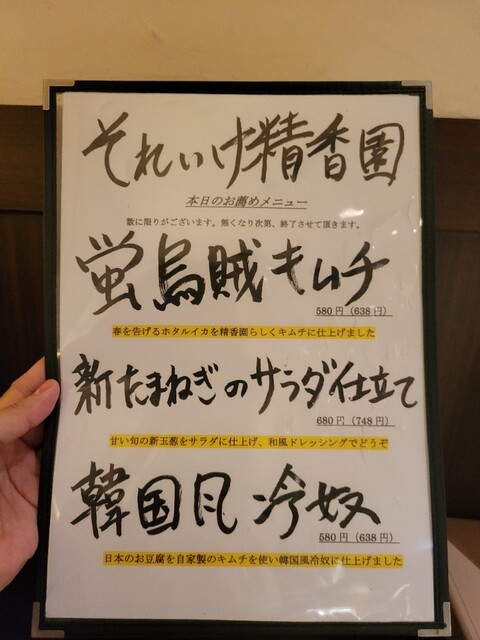 それいけ精香園
本日のお薦めメニュー
数に限りがございます。無くなり次第、終了させて頂きます。
蛍烏賊キムチ
580円（638円）
春を告げるホタルイカを精香園らしくキムチに仕上げました
新たまねぎのサラダ仕立て
680円（748円）
甘い旬の新玉葱をサラダに仕上げ、和風ドレッシングでどうぞ
韓国風冷奴
580円（638円）
日本のお豆腐を自家製のキムチを使い韓国風冷奴に仕上げました